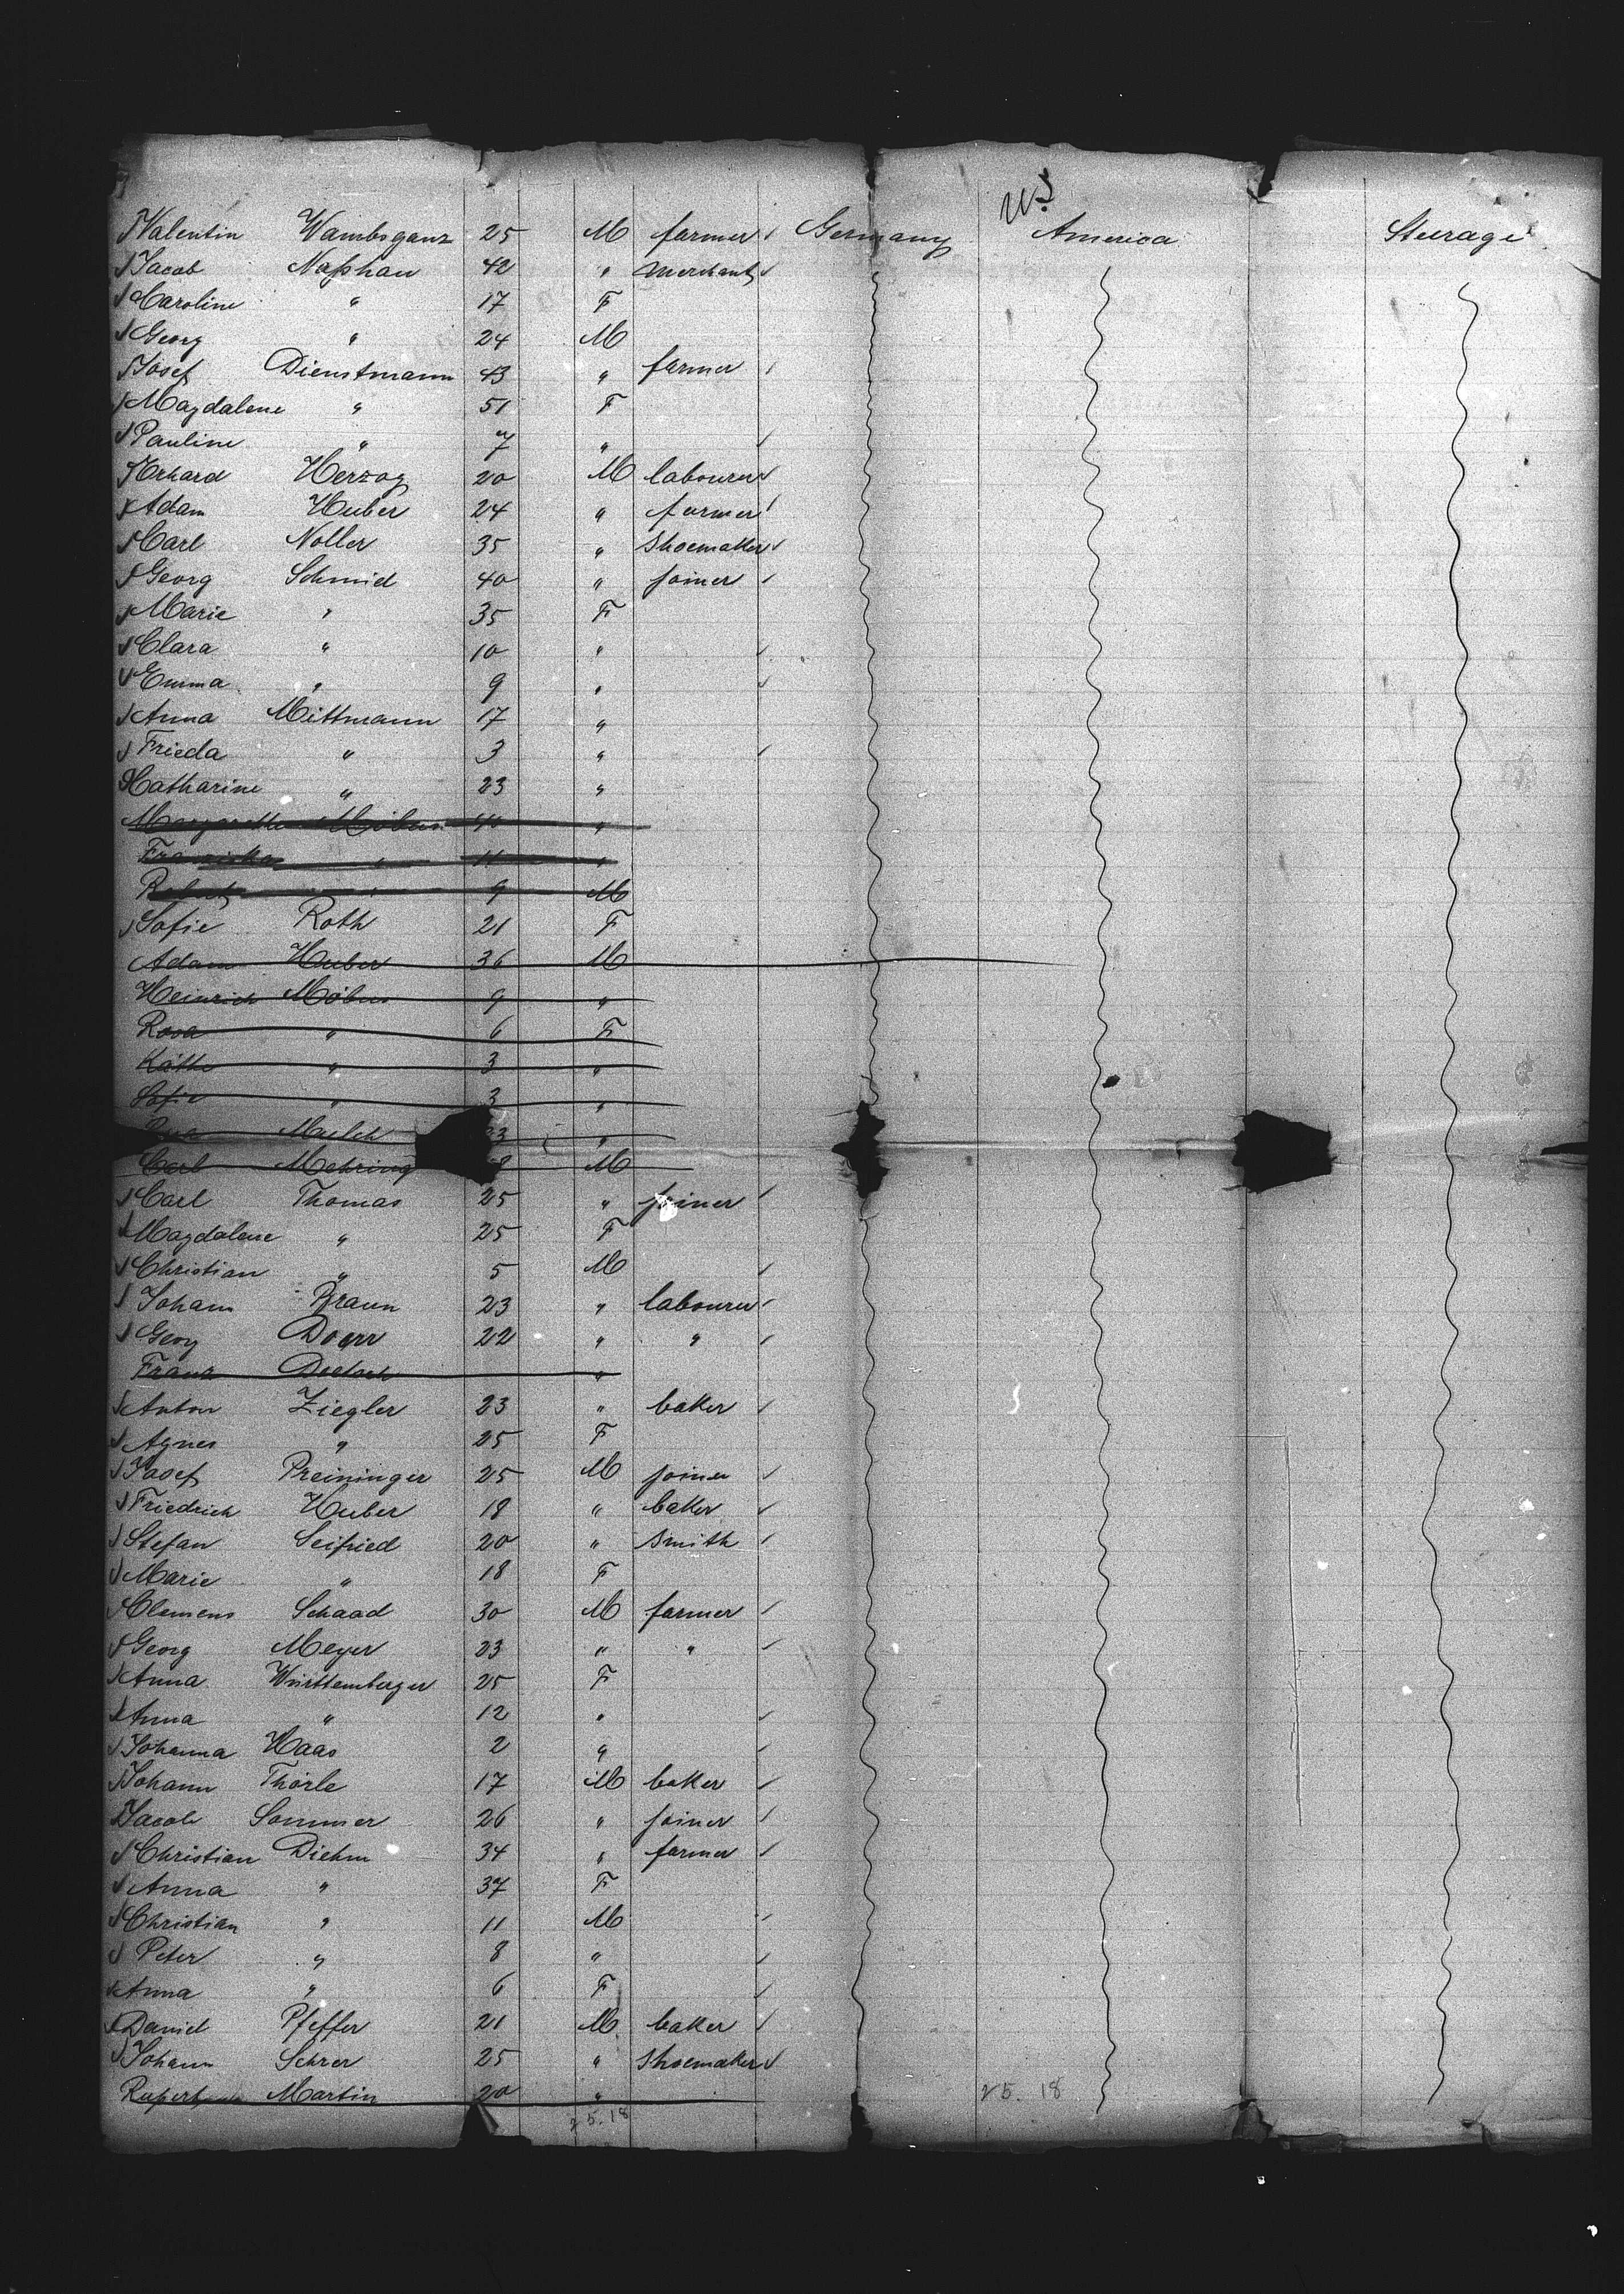 US
Valentin Wambsganz 25 M farmer Germany America Steerage
Jacob Naßhan 42 " Merchant
Caroline " 17 F
Georg " 24 M
Josef Dienstmann 43 " farmer
Magdalene " 51 F
Pauline " 7 "
Erhard Herzog 20 M labourer
Adam Huber 24 " farmer
Carl Noller 35 " Shoemaker
Georg Schmid 40 " joiner
Marie " 35 F
Clara " 10 "
Emma " 9 "
Anna Mittmann 17 "
Frieda " 3 "
Katharine " 23 "
Margarethe Möbus 40 "
Franziska " 11 "
" 9 M
Sofie Roth 21 F
Adam Huber 36 M
Heinrich Möbus 9 "
Rosa " 6 F
Käthe " 3 "
Sofie " 3 "
"
Carl Mehring M
Carl Thomas 25 " joiner
Magdalene " 25 F
Christian " 5 M
Johann Braun 23 " labourer
Georg Doerr 22 " "
Franz "
Anton Ziegler 23 " baker
Agnes " 25 F
Josef Preininger 25 M joiner
Friedrich Huber 18 " baker
Stefan Seifried 20 " Smith
Marie " 18 F
Clemens Schaad 30 M farmer
Georg Meyer 23 " "
Anna Württemberger 25 F
Anna " 12 "
Johanna Haas 2 "
Johann Thörle 17 M baker
Jacob Sommer 26 " joiner
Christian Diehm 34 " farmer
Anna " 37 F
Christian " 11 M
Peter " 8 "
Anna " 6 F
Daniel Pfeffer 21 M baker
Johann Schrer 25 " Shoemaker
Rupert Martin 20 "
25.18 25.18